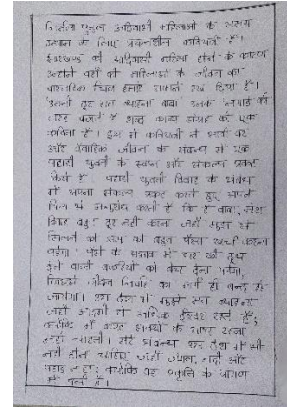 निर्मला पुतुल आदिवासी महिलाओं के समग्र
उत्थान के लिए प्रयत्नशील कवयित्री हैं।
झारखण्ड की आदिवासी महिला होने के कारण
उन्होंने वहाँ की महिलाओं के जीवन का
वास्तविक चित्र हमारे सामने रख दिया है।
उतनी दूर मत ब्याहना बाबा उनके नगाड़े की
तरह बजते हैं शब्द काव्य संग्रह की एक
कविता है। इस में कवयित्री ने शादी
और वैवाहिक जीवन के सम्बन्ध में एक
पहाड़ी युवती के स्वप्न और संकल्प प्रकट
किये हैं। पहाड़ी युवती विवाह के संबंध
में अपना संकल्प प्रकट करते हुए अपने
पिता से अनुरोध करती है कि हे बाबा, मेरा
विवाह बहुत दूर नहीं करना जहाँ मुझसे
मिलने को आप को बहुत पैसा खर्चा करना
पड़ेगा। पैसे के अभाव में घर की दूध
देने वाली बकरियों को बेच देना पड़ेगा,
जिससे जीवन निर्वाह का मार्ग ही बन्द हो
जायेगा। उस देश में मुझको मत ब्याहना
जहाँ आदमी से अधिक ईश्वर रहते हैं,
क्योंकि मैं के साथ रहना
नहीं चाहती। मेरे सम्बन्ध उस देश में भी
नहीं होना चाहिए जहाँ जंगल, नदी और
पहाड़ न हो क्योंकि वह प्रकृति के प्रांगण
में पली है।